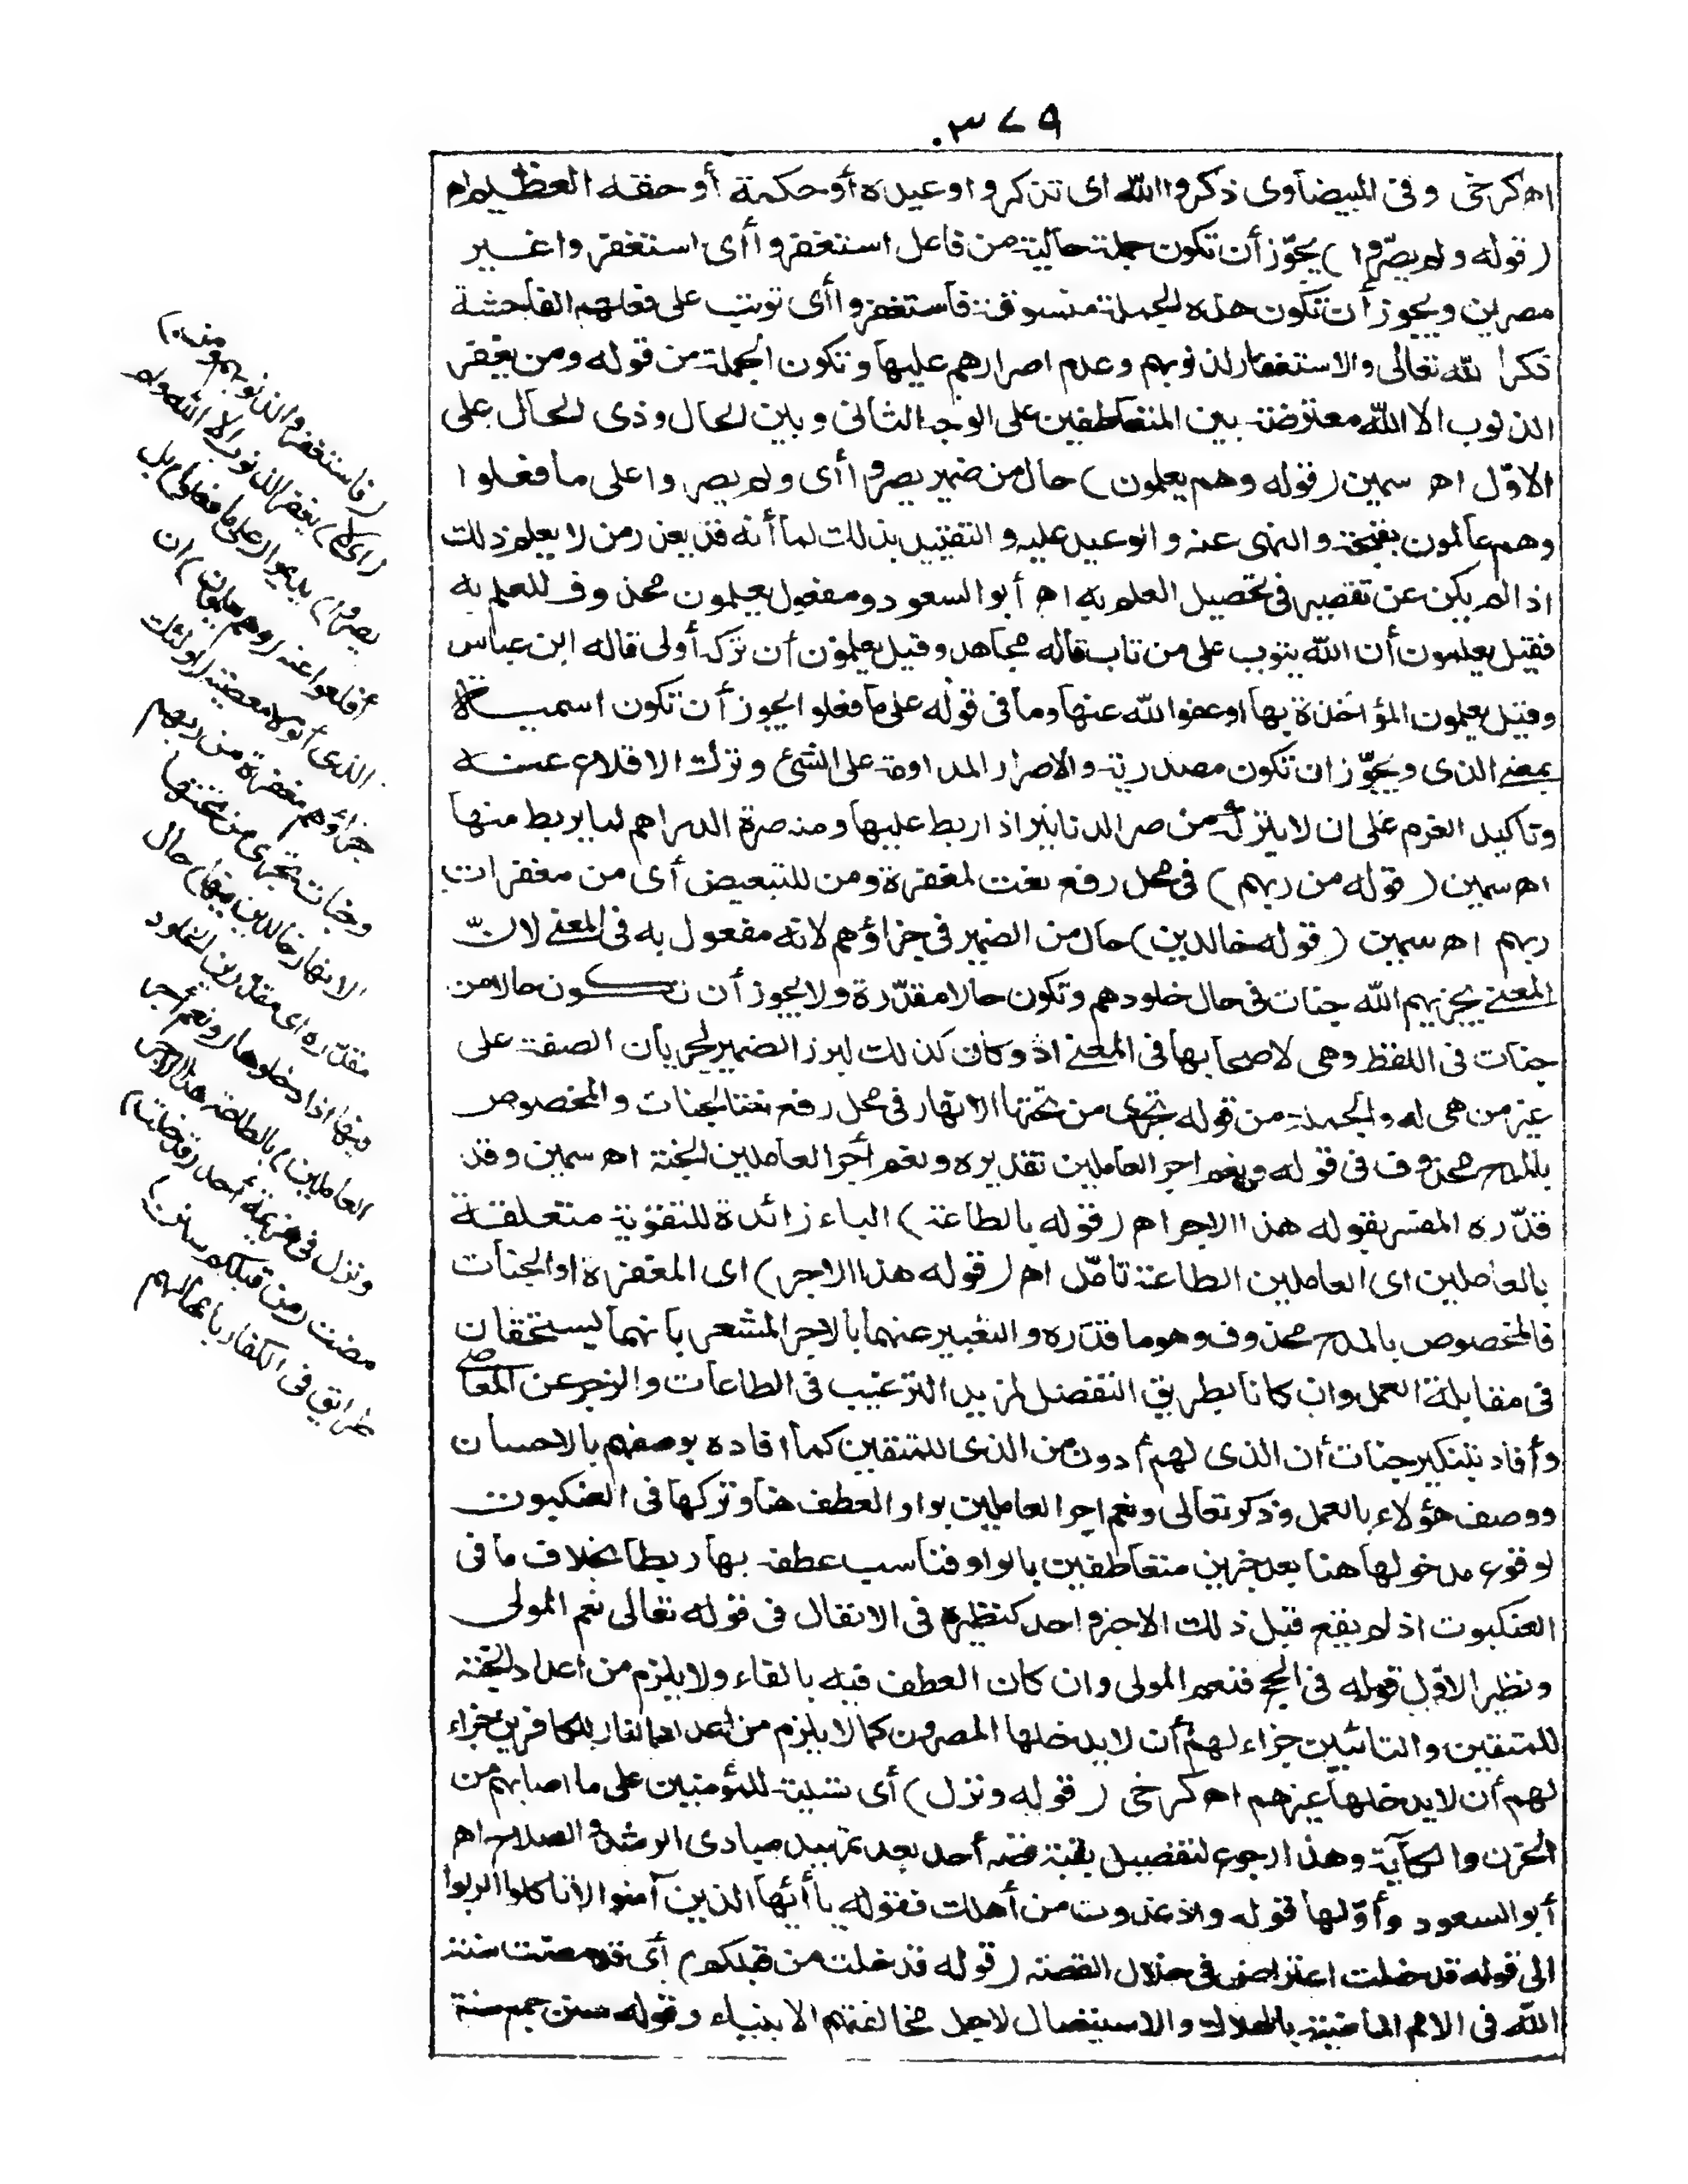 ٣٧٩
اه كرخى وفى البيضاوى ذكروا الله اى تذكروا وعيده أو حكمه أو حقه العظيم اه
(قوله ولم يصروا) يجوّز أن تكون جملة حالية من فاعل استغفروا أى استغفروا غير
مصرين ويجوز أن تكون هذه الجملة منسوقة فاستغفروا أى ترتب على فعلهم الفاحشة
ذكر الله تعالى والاستغفار لذنوبهم وعدم اصرارهم عليها وتكون الجملة من قوله ومن يغفر
الذنوب الا الله معترضة بين المتعاطفين على الوجه الثانى وبين الحال وذى الحال على
الاوّل اه سمين (قوله وهم يعلمون) حال من ضمير يصروا أى ولم يصروا على ما فعلوا
وهم عالمون بقبحه والنهى عنه والوعيد عليه والتقييد بذلك لما أنه قد يعذر من لا يعلم ذلك
اذا لم يكن عن تقصير فى تحصيل العلم به اه أبو السعود ومفعول يعلمون محذوف للعلم به
فقيل يعلمون أن الله يتوب على من تاب قاله مجاهد وقيل يعلمون أن تركه أولى قاله ابن عباس
وقيل يعلمون المؤاخذة بها أو عفو الله عنها وما فى قوله على ما فعلوا يجوز أن تكون اسمية
بمعنى الذى ويجوّز ان تكون مصدرية والاصرار المداومة على الشئ وترك الاقلاع عنه
وتاكيد العزم على ان لا يتركه من صر الدنانير اذا ربط عليها ومنه صرة الدراهم لما يربط منها
اه سمين (قوله من ربهم) فى محل رفع نعت لمغفرة ومن للتبعيض أى من مغفرات
ربهم اه سمين (قوله خالدين) حال من الضمير فى جزاؤهم لانه مفعول به فى المعنى لانّ
المعنى يجزيهم الله جنات فى حال خلودهم وتكون حالا مقدّرة ولا يجوز أن تكون حالا من
جنات فى اللفظ وهى لاصحابها فى المعنى اذ لو كان كذلك لبرز الضمير لجريان الصفة على
غير من هى له والجملة من قوله تجرى من تحتها الانهار فى محل رفع نعتا لجنات والمخصوص
بالمدح محذوف فى قوله ونعم اجر العاملين تقديره ونعم أجر العاملين الجنة اه سمين وقد
قدّره المفسر بقوله هذا الاجر اه (قوله بالطاعة) الباء زائدة للتقوية متعلقة
بالعاملين اى العاملين الطاعة تامّل اه (قوله هذا الاجر) اى المغفرة او الجنات
فالمخصوص بالمدح محذوف وهو ما قدّره والتعبير عنهما بالاجر المشعر بانهما يستحقان
فى مقابلة العمل وان كانا بطريق التفضل لمزيد الترغيب فى الطاعات والزجر عن المعاصى
وأفاد بتنكير جنات أن الذى لهم أدون من الذى للمتقين كما افاده بوصفهم بالاحسان
ووصف هؤلاء بالعمل وذكر تعالى ونعم اجر العاملين بواو العطف هنا وتركها فى العنكبوت
لوقوع مدخولها هنا بعد خبرين متعاطفين بالواو فناسب عطفه بها ربطا بخلاف ما فى
العنكبوت اذ لم يقع قبل ذلك الا خبر واحد كنظيره فى الانفال فى قوله تعالى نعم المولى
ونظير الاوّل قوله فى الحج فنعم المولى وان كان العطف فيه بالفاء ولا يلزم من اعداد الجنة
للمتقين والتائبين جزاء لهم أن لا يدخلها المصرون كما لا يلزم من اعداد النار للكافرين جزاء
لهم أن لا يدخلها غيرهم اه كرخى (قوله ونزل) أى تسلية للمؤمنين على ما اصابهم من
الحزن والكآبة وهذا رجوع لتفصيل بقية قصة أحد بعد تمهيد مبادى الرشد والصلاح اه
أبو السعود وأوّلها قوله واذ غدوت من أهلك فقوله يا أيّها الذين آمنوا لا تاكلوا الربوا
الى قوله قد خلت اعتراض فى خلال القصة (قوله قد خلت من قبلكم) أى قد مضت سنة
الله فى الامم الماضية بالهلاك والاستئصال لاجل مخالفتهم الانبياء وقوله سنن جمع سنة
(فاستغفروا لذنوبهم ومن)
(اى لا) يغفر الذنوب الا الله ولم
يصروا) يديموا (على ما فعلوا) بل
أقلعوا عنه (وهم يعلمون) ان
الذى أتوه معصية (أولئك
جزاؤهم مغفرة من ربهم
وجنات تجرى من تحتها
الانهار خالدين فيها) حال
مقدّرة اى مقدّرين الخلود
فيها اذا دخلوها (ونعم أجر
العاملين) بالطاعة هذا الاجر
ونزل فى هزيمة أحد (قد خلت)
مضت (من قبلكم سنن)
طرائق فى الكفار بامهالهم